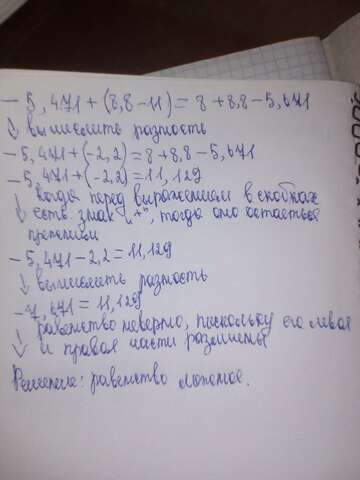 - 5,471 + (8,8 - 11) = 8 + 8,8 - 5,671
↓ вычислить разность
- 5,471 + (-2,2) = 8 + 8,8 - 5,671
- 5,471 + (-2,2) = 11,129
↓ когда перед выражением в скобках
↓ есть знак "+", тогда оно остаётся
прежним
- 5,471 - 2,2 = 11,129
↓ вычислить разность
- 7,671 = 11,129
↓ равенство неверно, поскольку его левая
↓ и правая части различны
Решение: равенство ложное.